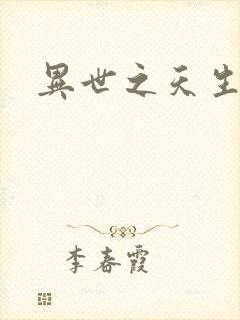 異世之天生
李春霞